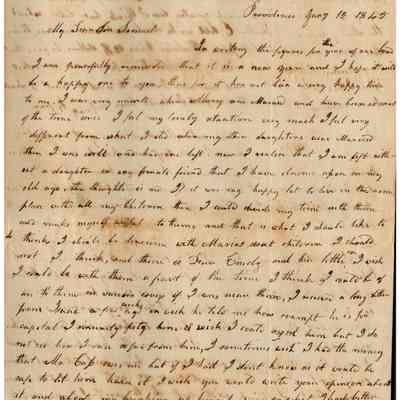 Providence Jany 12 1845
My Dear Son Samuel
In writing the figures for the year of our Lord
I am powerfully reminded that it is a new year and I hope it will
be a happy one to you thus far it has not been a very happy time
to me. I was very much when Mary was Married and have been
of the time since I feel my lonely situation very much I feel very
different from what I did when my other daughters were Married
then I was well and had one left now I realize that I am left with-
out a daughter or any female friend that I have upon in my
old age, the thought is sad If it was my happy lot to live in the same
place with all my children then I could divide my time with them
and make myself useful to them and that is what I should like to
think I should be with Marias dear children I should
not I think, and there is Dear Emily and her little I wish
I could be with them a part of the time I think I might be of
use to them in various ways if I was near them, I received a long letter
from Isaac a few days ago in which he told me how cramped he is for
capital I pity him I wish I could aid him but I do
not see how I can from him, I sometimes wish I had the money
that Mr Cap but if I had I don't know as it would be
safe to let him have it I wish you would write your opinion about
it and